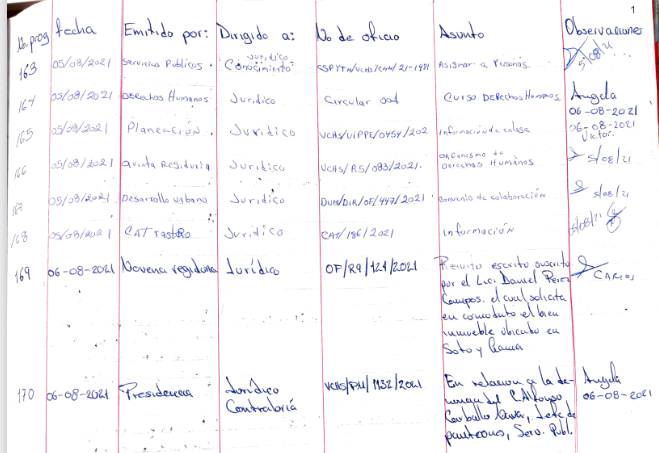 1
No. prog fecha Emitido por: Dirigido a: No de oficio Asunto Observaciones
163 05/08/2021 Servicios Publicos. Juridico "Conocimiento" 5/08/21
164 05/08/2021 Derechos Humanos Juridico Circular Curso Derechos Humanos Angela
06-08-2021
165 05/08/2021 Planeación. Juridico VCHS/UIPPE/0454/202 Información de 06-08-2021
Victor.
166 05/08/2021 Quinta Juridico VCHS/R5/083/2021. Organismo de 5/08/21
Derechos Humanos
05/08/2021 Desarrollo urbano Juridico DUM/DIR/OF/447/2021 Convenio de colaboración 5/08/21
168 05/08/2021 CATrastRo Juridico CAT/186/2021 Información
169 06-08-2021 Novena regiduria Jurídico OF/R9/121/2021 escrito suscrito
por el Lic. Daniel Perez CARLOS
Campos. el cual solicita
en comodato el bien
inmueble ubicado en
Soto y Gama
170 06-08-2021 Presidencia Jurídico VCHS/PM/1132/2021 En relacion a la de- Angela
Contraloría del C. Alfonso 06-08-2021
Carballo Jefe de
panteones, Serv. Publ.